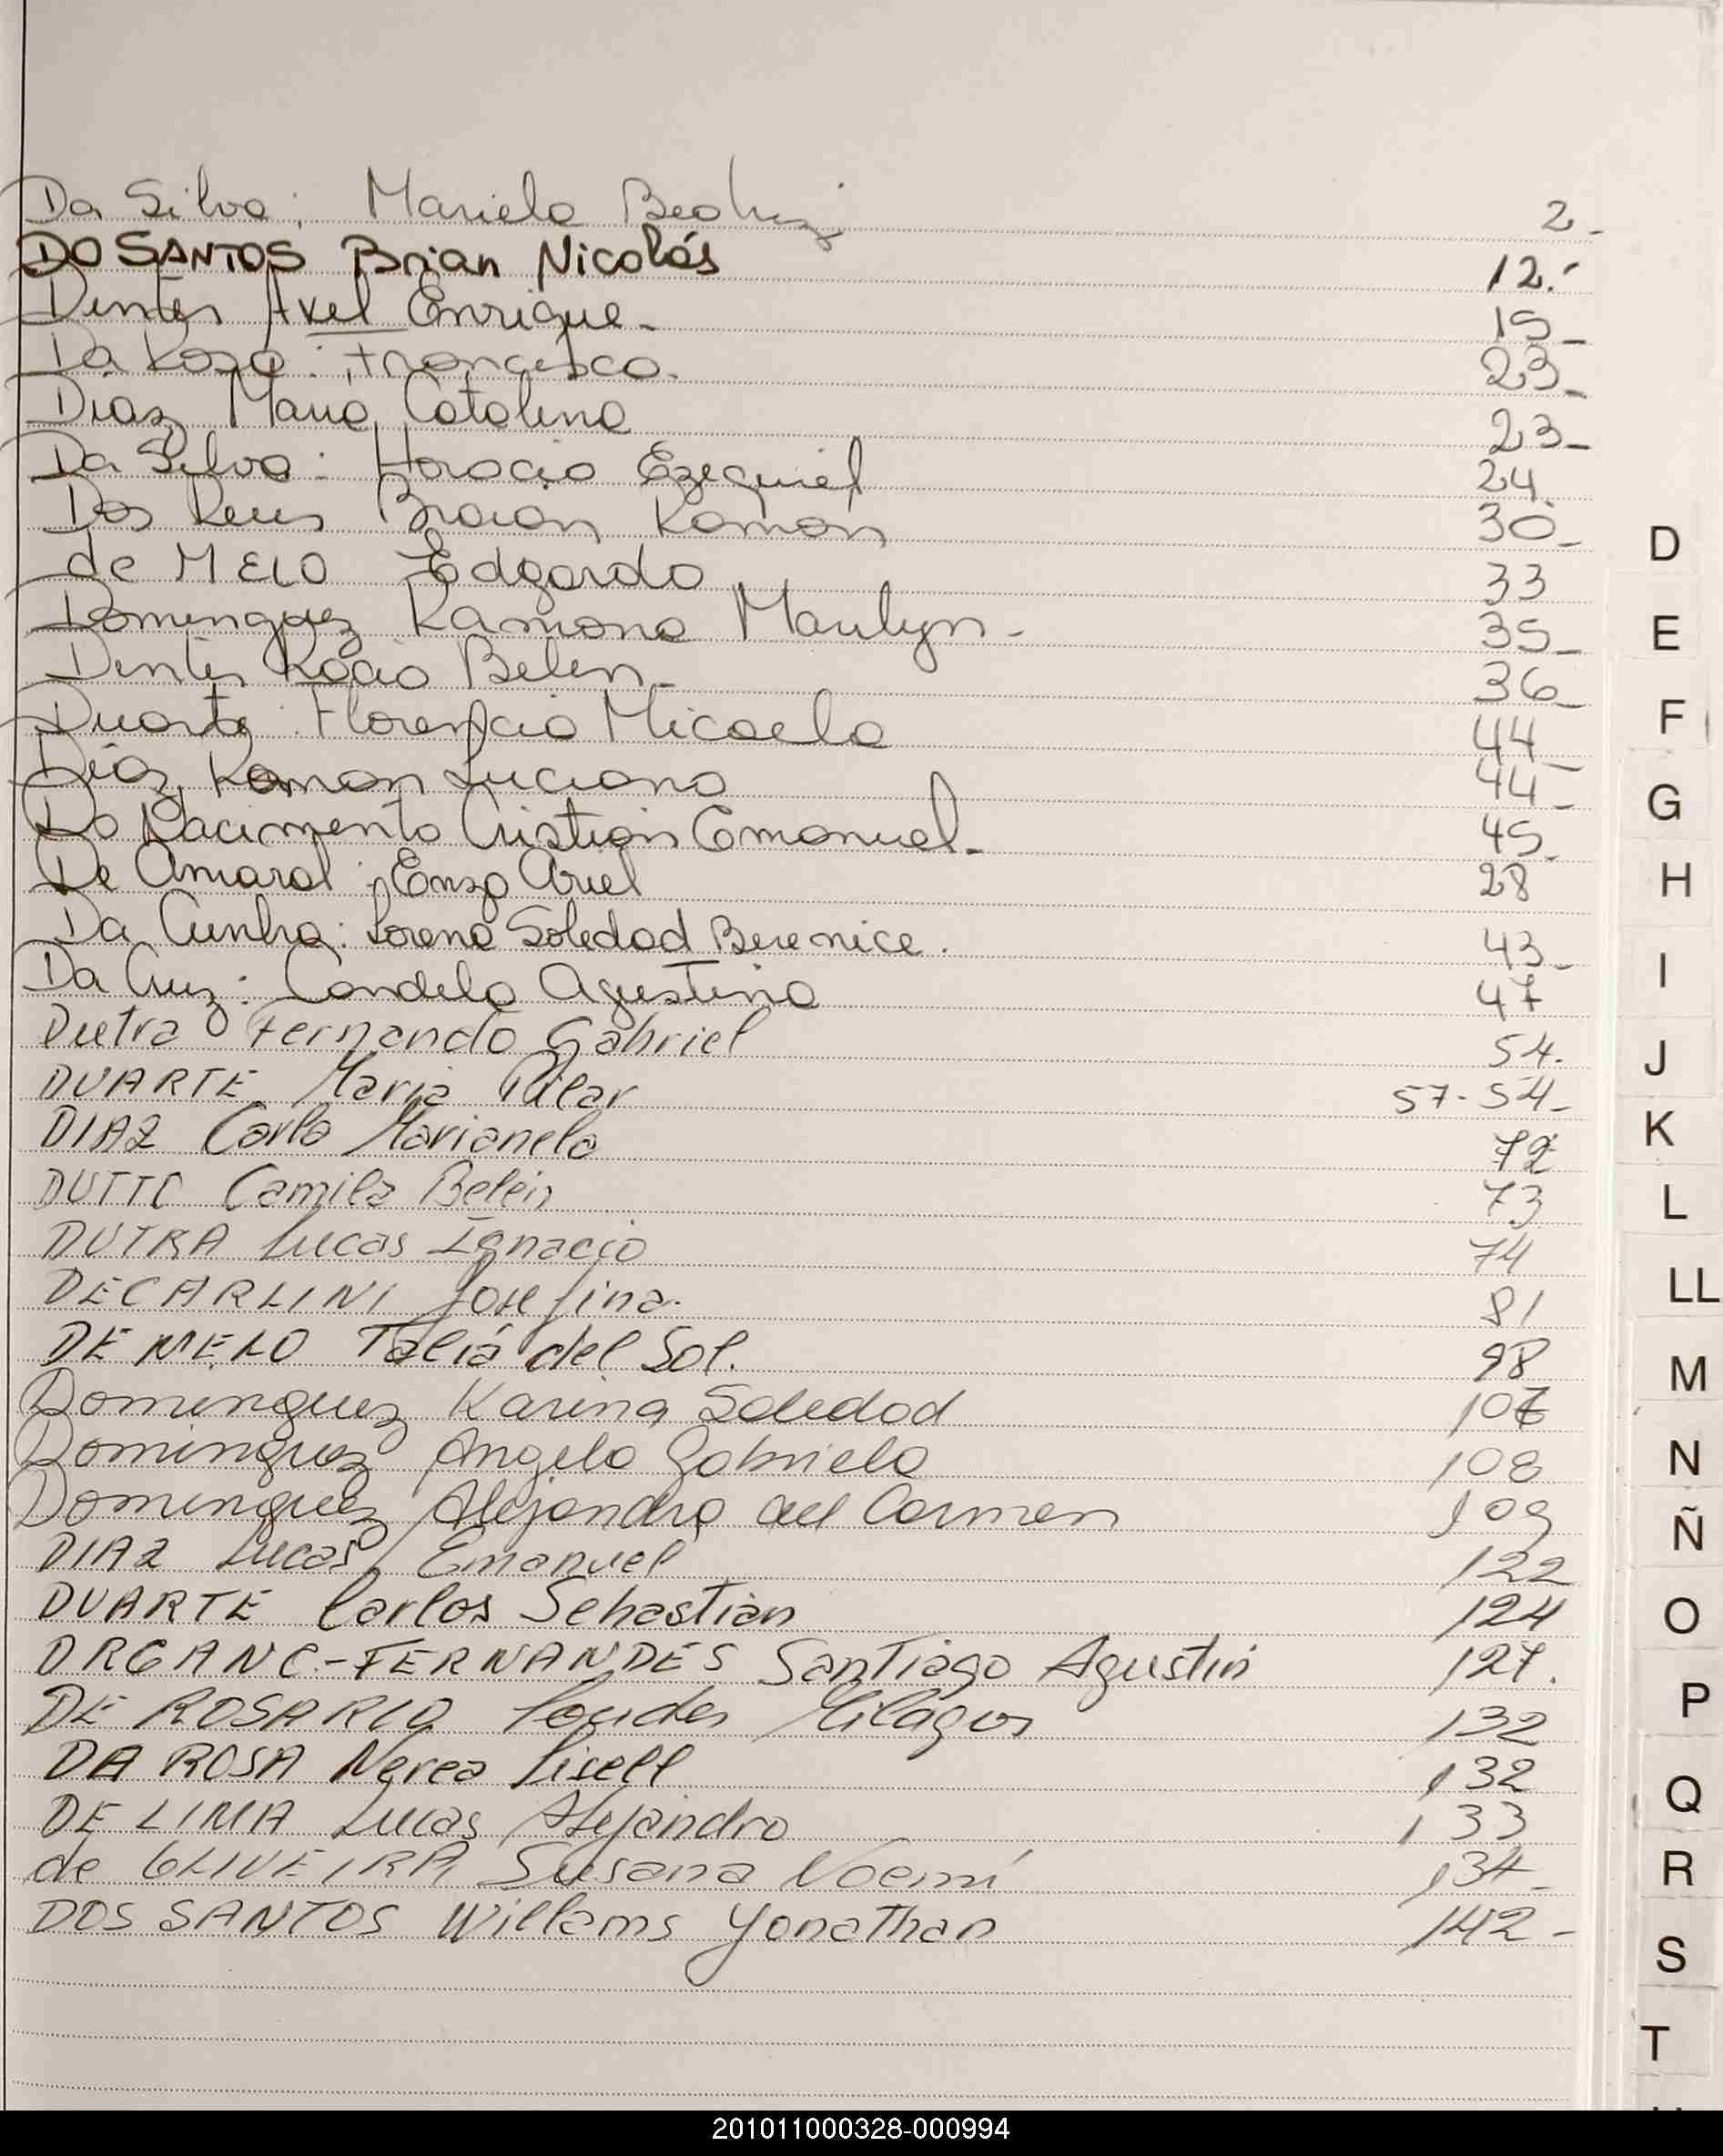 Da Silva: Mariela Beatriz 2.-
DO SANTOS Brian Nicolás 12.-
Dentes Axel Enrique.- 15-
Da Rosa: Francisco. 23-
Diaz, Maria Catalina 23-
Da Silva: Horacio Ezequiel 24
Dos Reis Braian Ramon 30-
de MELO Edgardo 33
Dominguez Ramona Marilyn- 35-
Dentes Rocio Belen- 36-
Duarte: Florencia Micaela 44
Diaz, Ramon Luciano 44-
Do Nacimento Cristian Emanuel- 45-
De Amaral: Enzo Ariel 28
Da Cunha: Lorena Soledad Berenice. 43-
Da Cruz: Candela Agustina 47
Dutra Fernando Gabriel 54.
DUARTE Maria Pilar 57-54-
DIAZ Carla Marianela 72
Camila Belén 73
DUTRA Lucas Ignacio 74
DECARLINI Josefina. 81
DE MELO Talia del Sol. 98
Dominguez Karina Soledad 107
Dominguez Angela Gabriela 108
Dominguez Alejandra del Carmen 109
DIAZ Lucas Emanuel 122
DUARTE Carlos Sebastian 124
FERNANDES Santiago Agustin 127.
DE ROSARIO Milagros 132
DA ROSA Nerea Lisell 132
DE LIMA Lucas Alejandro 133
de OLIVEIRA Susana Noemí 134-
DOS SANTOS Willams Yonathan 142-
D
E
F
G
H
I
J
K
L
LL
M
N
Ñ
O
P
Q
R
S
T
201011000328-000994